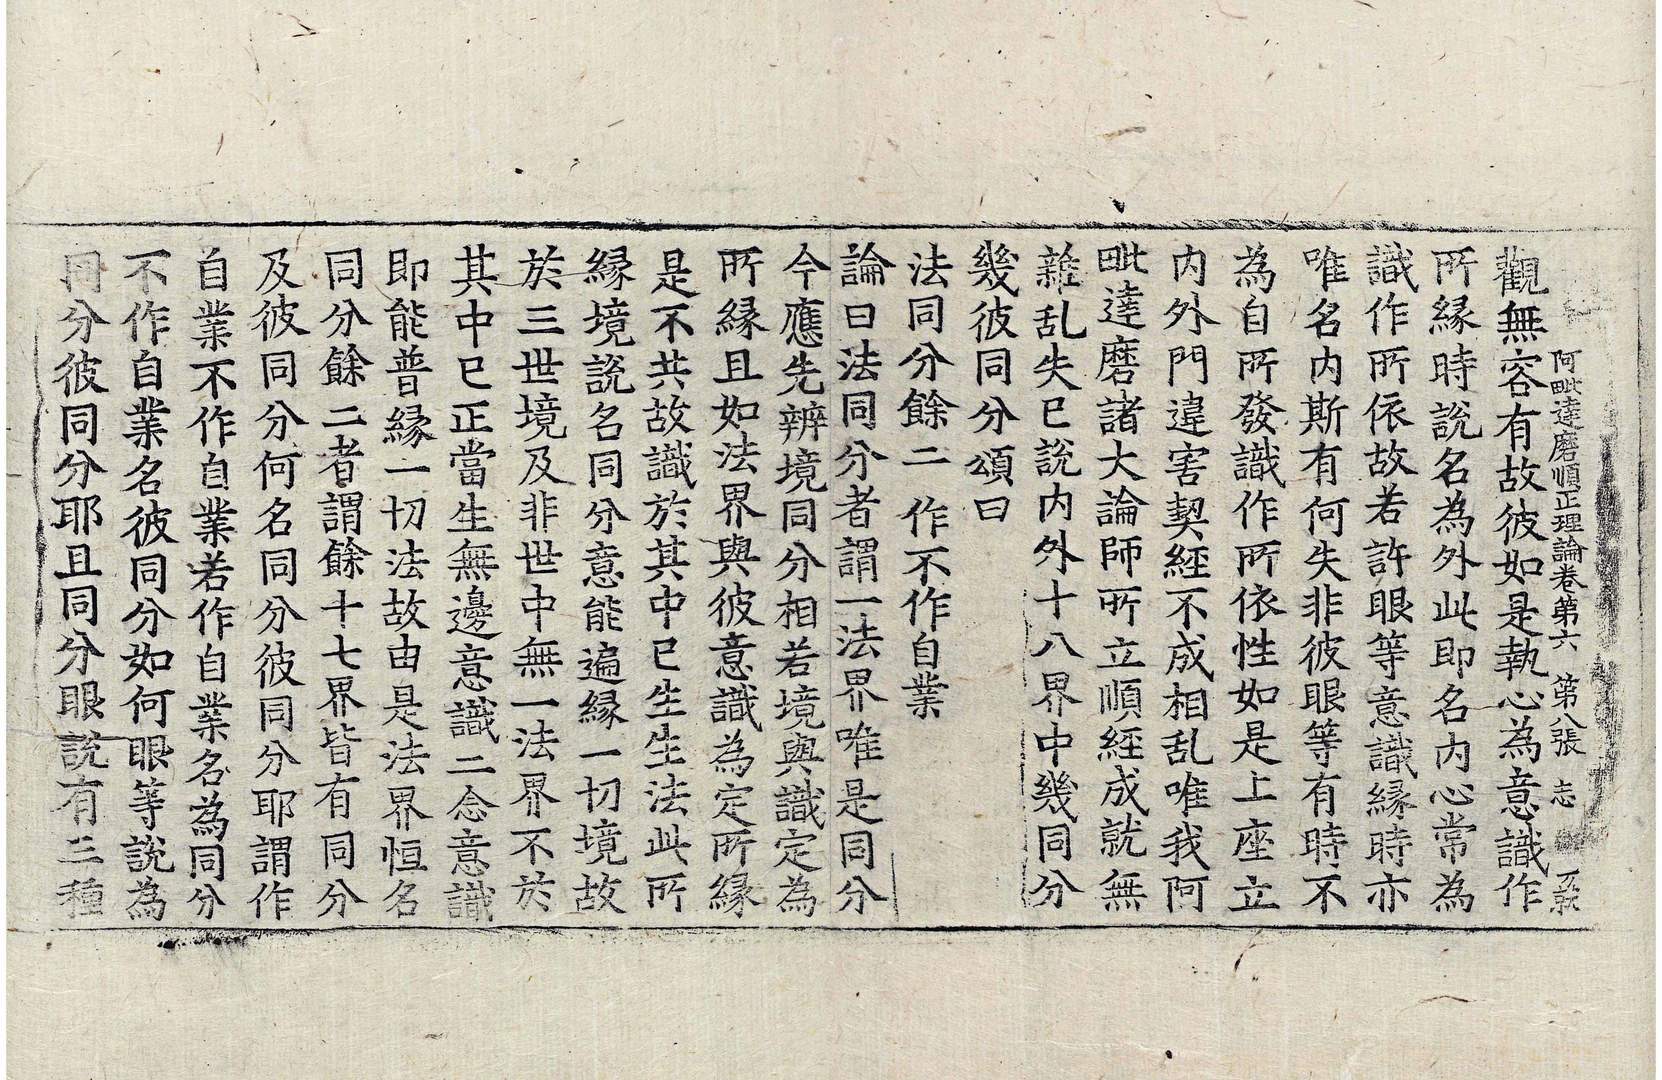 阿毗達磨順正理論卷第六　第八張　志
觀無容有故彼如是執心為意識作
所縁時說名為外此即名內心常為
識作所依故若許眼等意識縁時亦
唯名內斯有何失非彼眼等有時不
為自所發識作所依性如是上座立
內外門違害契經不成相乱唯我阿
毗達磨諸大論師所立順經成就無
雜乱失已說內外十八界中幾同分
幾彼同分頌曰
法同分餘二　作不作自業
論曰法同分者謂一法界唯是同分
今應先辨境同分相若境與識定為
所縁且如法界與彼意識為定所縁
是不共故識於其中已生生法此所
縁境說名同分意能遍縁一切境故
於三世境及非世中無一法界不於
其中已正當生無邊意識二念意識
即能普縁一切法故由是法界恒名
同分餘二者謂餘十七界皆有同分
及彼同分何名同分彼同分耶謂作
自業不作自業若作自業名為同分
不作自業名彼同分如何眼等說為
同分彼同分耶且同分眼說有三種